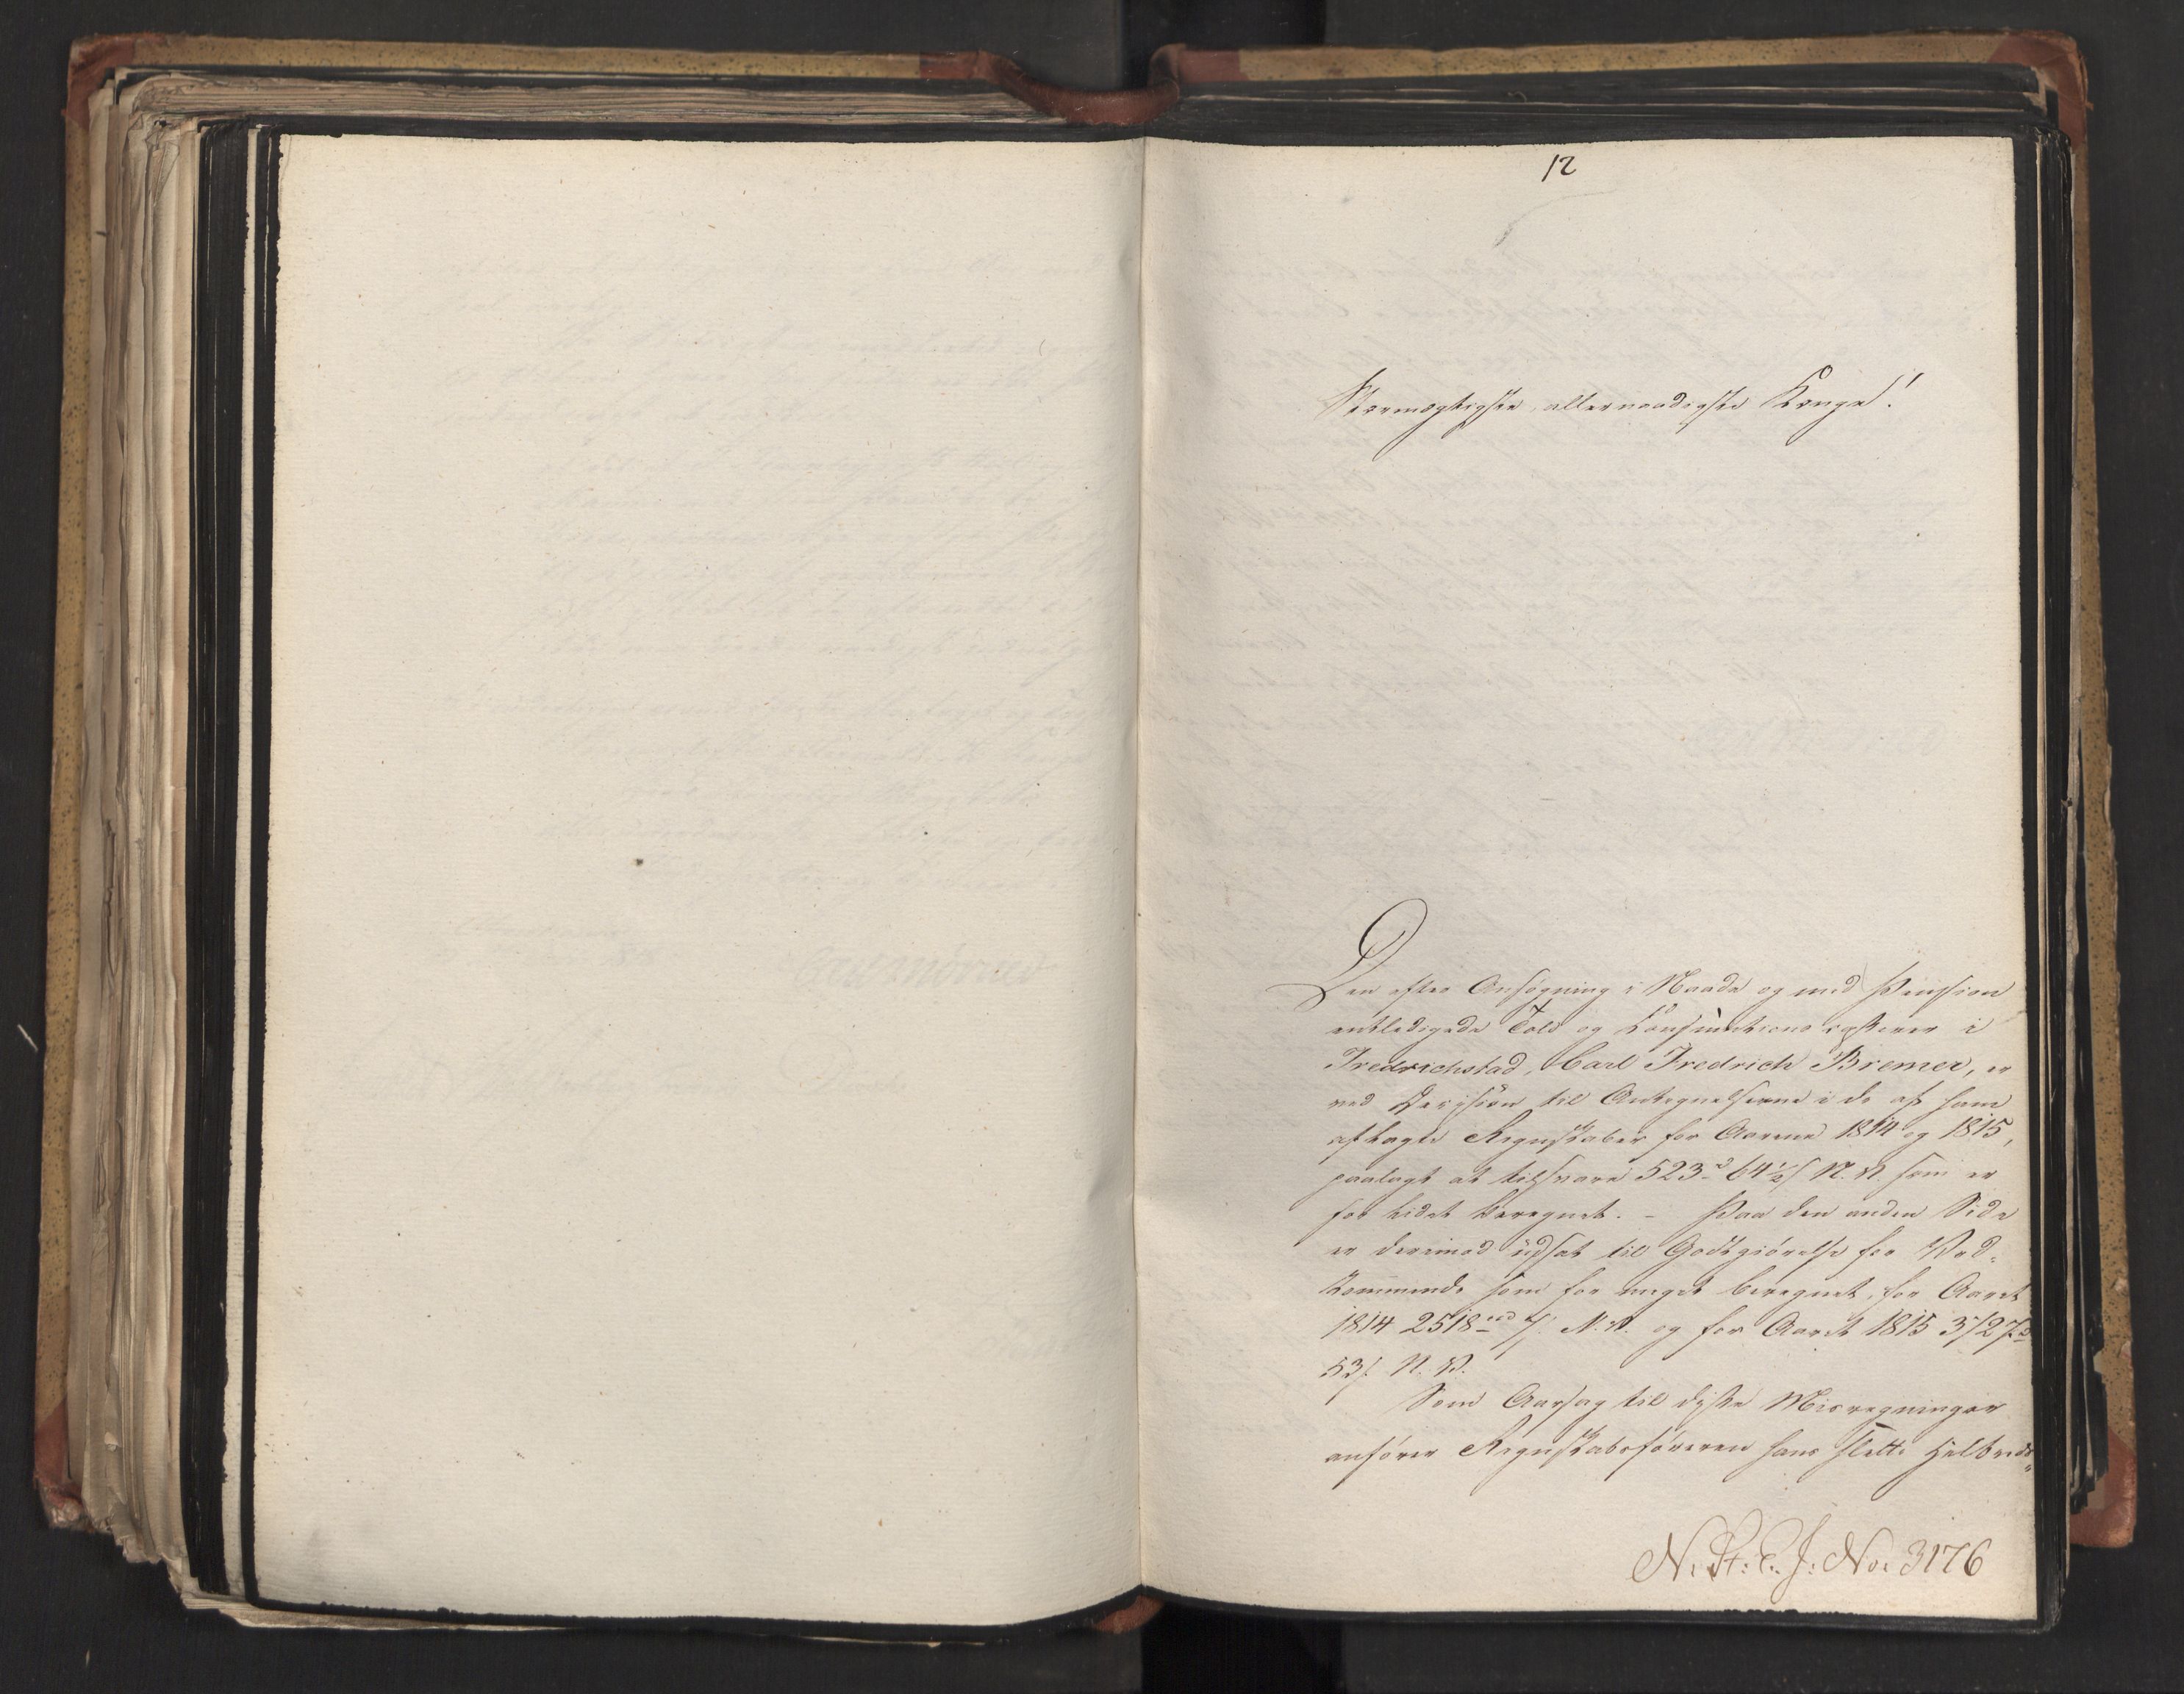 12
Stormægtigste, allernaadigste Konge!
Den efter Ansøgning i Naade og med Pension
entledigede Told og Consumtions casserer i
Fredrichstad, Carl Fredrich Bremer, er
ved Decision til Antegnelserne i de af ham
aflagte Regnskaber for Aarene 1814 og 1815,
paalagt at tilsvare 523 64½ s N.V. som er
for lidet beregnet. - Paa den anden Side
er derimod udsat til Godtgiørelse for Ved-
kommende som for meget beregnet, for Aaret
1814 2518 rd 7 s N.V. og for Aaret 1815 3727
53 s N.V.
Som Aarsag til disse Misregninger
anfører Regnskabsføreren hans slette Helbreds-
N. St: E. J: No: 3176